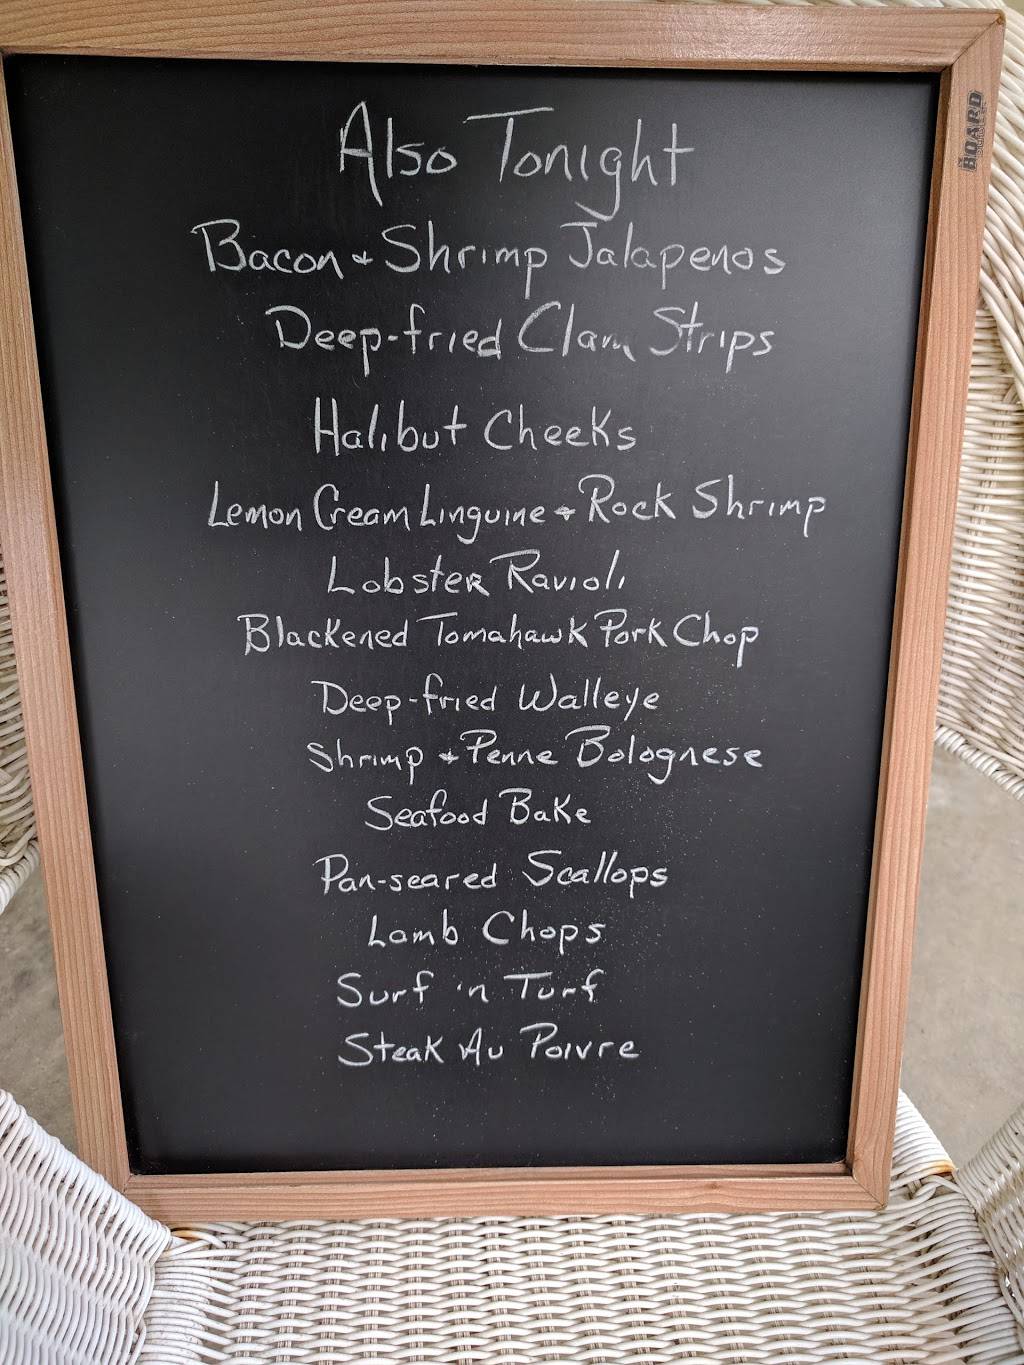 Also Tonight
Bacon & Shrimp Jalapenos
Deep-fried Clam Strips
Halibut Cheeks
Lemon Cream Linguine & Rock Shrimp
Lobster Ravioli
Blackened Tomahawk Pork Chop
Deep-fried Walleye
Shrimp & Penne Bolognese
Seafood Bake
Pan-seared Scallops
Lamb Chops
Surf 'n Turf
Steak Au Poivre
THE BOARD